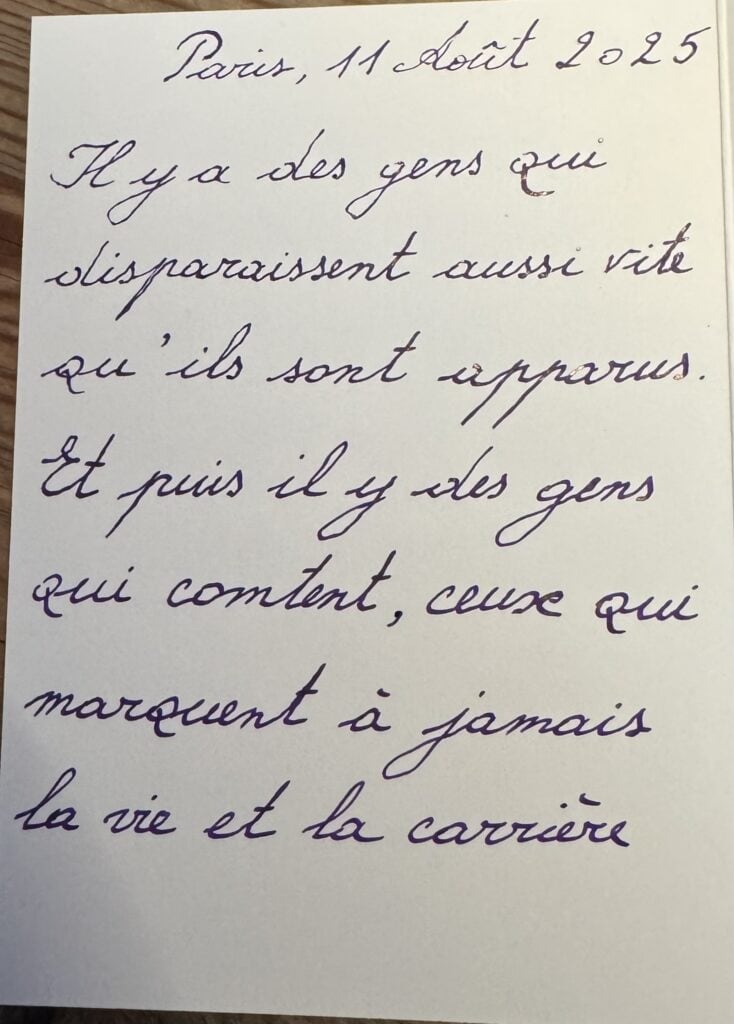 Paris, 11 Août 2025
Il y a des gens qui
disparaissent aussi vite
qu'ils sont apparus.
Et puis il y des gens
qui comtent, ceux qui
marquent à jamais
la vie et la carrière